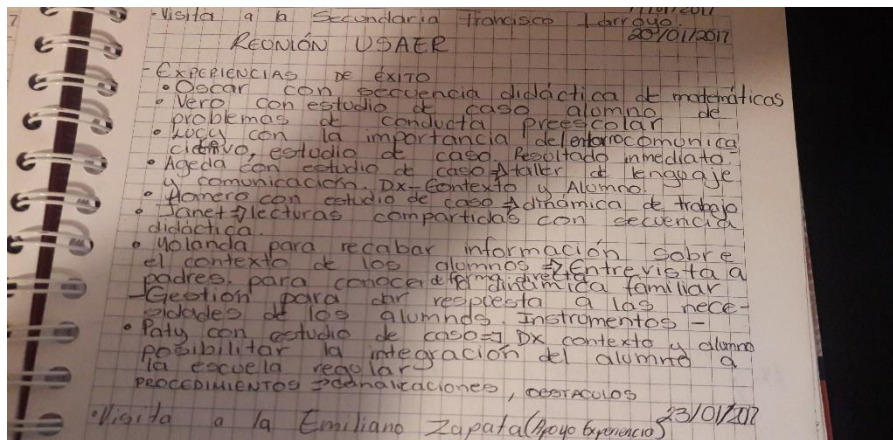 -Visita a la Secundaria Francisco Larroyo.
20/01/2017
REUNIÓN USAER
-EXPERIENCIAS DE ÉXITO
• Oscar con secuencia didáctica de matemáticas
• Vero con estudio de caso alumno de
problemas de conducta preescolar
• Lucy con la importancia del
estudio de caso. Resultado inmediato.
• Ageda con estudio de caso → taller de lenguaje
y comunicación. Dx-Contexto y Alumno.
• Homero con estudio de caso → dinámica de trabajo
• Janet → lecturas compartidas con secuencia
didáctica.
• Yolanda para recabar información sobre
el contexto de los alumnos → Entrevista a
padres, para conocer de forma directa dinámica familiar
-Gestión para dar respuesta a las nece-
sidades de los alumnos Instrumentos -
• Paty con estudio de caso → Dx contexto y alumno
posibilitar la integración del alumno a
la escuela regular
PROCEDIMIENTOS → canalizaciones, OBSTACULOS
• Visita a la Emiliano Zapata (Apoyo Experiencia) 23/01/2017